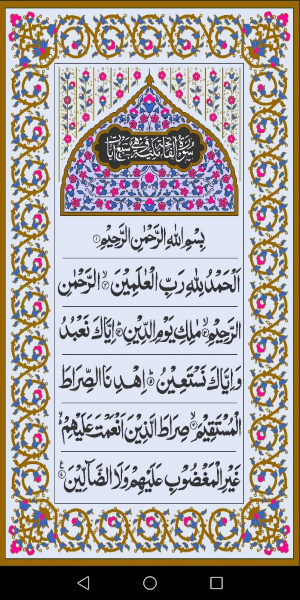 سورة الفاتحة مكية وهي سبع آيات
بِسْمِ اللهِ الرَّحْمٰنِ الرَّحِيْمِ ۝۱
اَلْحَمْدُ لِلّٰهِ رَبِّ الْعٰلَمِيْنَ ۝۲ الرَّحْمٰنِ
الرَّحِيْمِ ۝۳ مٰلِكِ يَوْمِ الدِّيْنِ ۝۴ اِيَّاكَ نَعْبُدُ
وَاِيَّاكَ نَسْتَعِيْنُ ۝۵ اِهْدِنَا الصِّرَاطَ
الْمُسْتَقِيْمَ ۝۶ صِرَاطَ الَّذِيْنَ اَنْعَمْتَ عَلَيْهِمْ
غَيْرِ الْمَغْضُوْبِ عَلَيْهِمْ وَلَا الضَّآلِّيْنَ ۝۷